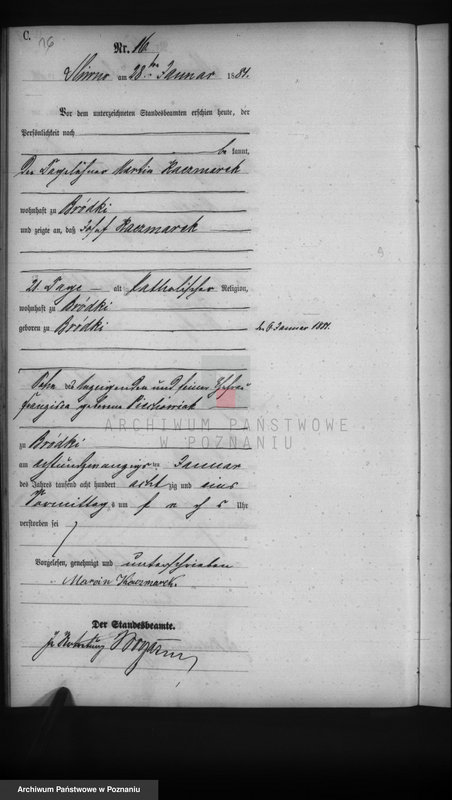 C.
16
Nr. 16
am 28ten Januar 1881.
Vor dem unterzeichneten Standesbeamten erschien heute, der
Persönlichkeit nach
be kannt,
Der Tagelöhner Martin Kaczmarek
wohnhaft zu Bródki
und zeigte an, daß Josef Kaczmarek
21 Tage alt katholischer Religion,
wohnhaft zu Bródki
geboren zu Bródki
den 6 Januar 1881.
Sohn des Anzeigenden und seiner Ehefrau
Franziska geborene
zu Bródki
am achtundzwanzigsten Januar
des Jahres tausend acht hundert acht zig und eins
Vormittags um f ü n f Uhr
verstorben sei
Vorgelesen, genehmigt und unterschrieben
Marcin Kaczmarek.
Der Standesbeamte.
In Vertretung
ARCHIWUM PAŃSTWOWE
W POZNANIU
Archiwum Państwowe w Poznaniu